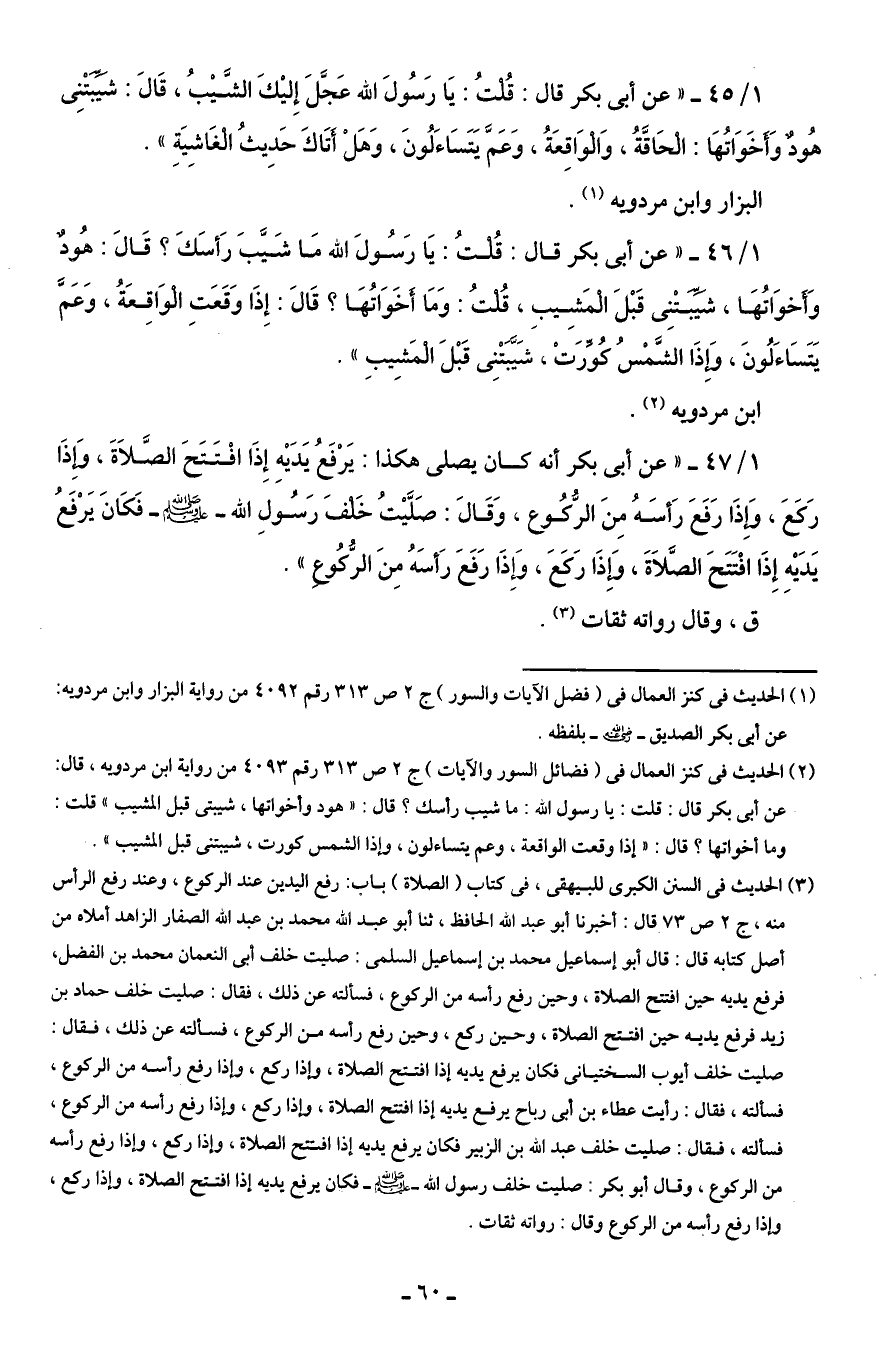 ١/ ٤٥ ـ « عن أبى بكر قال : قُلْتُ : يَا رَسُولَ الله عَجَّلَ إِلَيْكَ الشَّيْبُ ، قَالَ : شَيَّبَتْنِى
هُودٌ وَأَخَوَاتُهَا : الْحَاقَّةُ ، وَالْوَاقِعَةُ ، وَعَمَّ يَتَسَاءَلُونَ ، وَهَلْ أَتَاكَ حَدِيثُ الْغَاشِيَةِ » .
البزار وابن مردويه (١) .
١/ ٤٦ ـ « عن أبى بكر قال : قُلْتُ : يَا رَسُولَ الله مَا شَيَّبَ رَأسَكَ ؟ قَالَ : هُودٌ
وَأَخوَاتُهَا ، شَيَّبَتْنِى قَبْلَ الْمَشِيبِ ، قُلْتُ : وَمَا أَخَوَاتُهَا ؟ قَالَ : إِذَا وَقَعَتِ الْوَاقِعَةُ ، وَعَمَّ
يَتَسَاءَلُونَ ، وَإِذَا الشَّمْسُ كُوِّرَتْ ، شَيَّبَتْنِى قَبْلَ الْمَشِيبِ » .
ابن مردويه (٢) .
١/ ٤٧ ـ « عن أبى بكر أنه كان يصلى هكذا : يَرْفَعُ يَدَيْهِ إِذَا افْتَتَحَ الصَّلاَةَ ، وَإِذَا
رَكَعَ ، وَإِذَا رَفَعَ رَأسَهُ مِنَ الرُّكُوعِ ، وَقَالَ : صَلَّيْتُ خَلْفَ رَسُولِ الله ـ ﷺ ـ فَكَانَ يَرْفَعُ
يَدَيْهِ إِذَا افْتَتَحَ الصَّلاَةَ ، وَإِذَا رَكَعَ ، وَإِذَا رَفَعَ رَأسَهُ مِنَ الرُّكُوعِ » .
ق ، وقال رواته ثقات (٣) .
(١) الحديث فى كنز العمال فى ( فضل الآيات والسور ) ج ٢ ص ٣١٣ رقم ٤٠٩٢ من رواية البزار وابن مردويه:
عن أبى بكر الصديق ـ رضي الله عنه ـ بلفظه .
(٢) الحديث فى كنز العمال فى ( فضائل السور والآيات ) ج ٢ ص ٣١٣ رقم ٤٠٩٣ من رواية ابن مردويه ، قال:
عن أبى بكر قال : قلت : يا رسول الله : ما شيب رأسك ؟ قال : « هود وأخواتها ، شيبتى قبل المشيب » قلت :
وما أخواتها ؟ قال : « إذا وقعت الواقعة ، وعم يتساءلون ، وإذا الشمس كورت ، شيبتنى قبل المشيب » .
(٣) الحديث فى السنن الكبرى للبيهقى ، فى كتاب ( الصلاة ) باب: رفع اليدين عند الركوع ، وعند رفع الرأس
منه ، ج ٢ ص ٧٣ قال : أخبرنا أبو عبد الله الحافظ ، ثنا أبو عبد الله محمد بن عبد الله الصفار الزاهد أملاه من
أصل كتابه قال : قال أبو إسماعيل محمد بن إسماعيل السلمى : صليت خلف أبى النعمان محمد بن الفضل،
فرفع يديه حين افتتح الصلاة ، وحين رفع رأسه من الركوع ، فسألته عن ذلك ، فقال : صليت خلف حماد بن
زيد فرفع يديه حين افتتح الصلاة ، وحين ركع ، وحين رفع رأسه من الركوع ، فسألته عن ذلك ، فقال :
صليت خلف أيوب السختيانى فكان يرفع يديه إذا افتتح الصلاة ، وإذا ركع ، وإذا رفع رأسه من الركوع ،
فسألته ، فقال : رأيت عطاء بن أبى رباح يرفع يديه إذا افتتح الصلاة ، وإذا ركع ، وإذا رفع رأسه من الركوع ،
فسألته ، فقال : صليت خلف عبد الله بن الزبير فكان يرفع يديه إذا افتتح الصلاة ، وإذا ركع ، وإذا رفع رأسه
من الركوع ، وقال أبو بكر : صليت خلف رسول الله ـ ﷺ ـ فكان يرفع يديه إذا افتتح الصلاة ، وإذا ركع ،
وإذا رفع رأسه من الركوع وقال : رواته ثقات .
ـ ٦٠ ـ